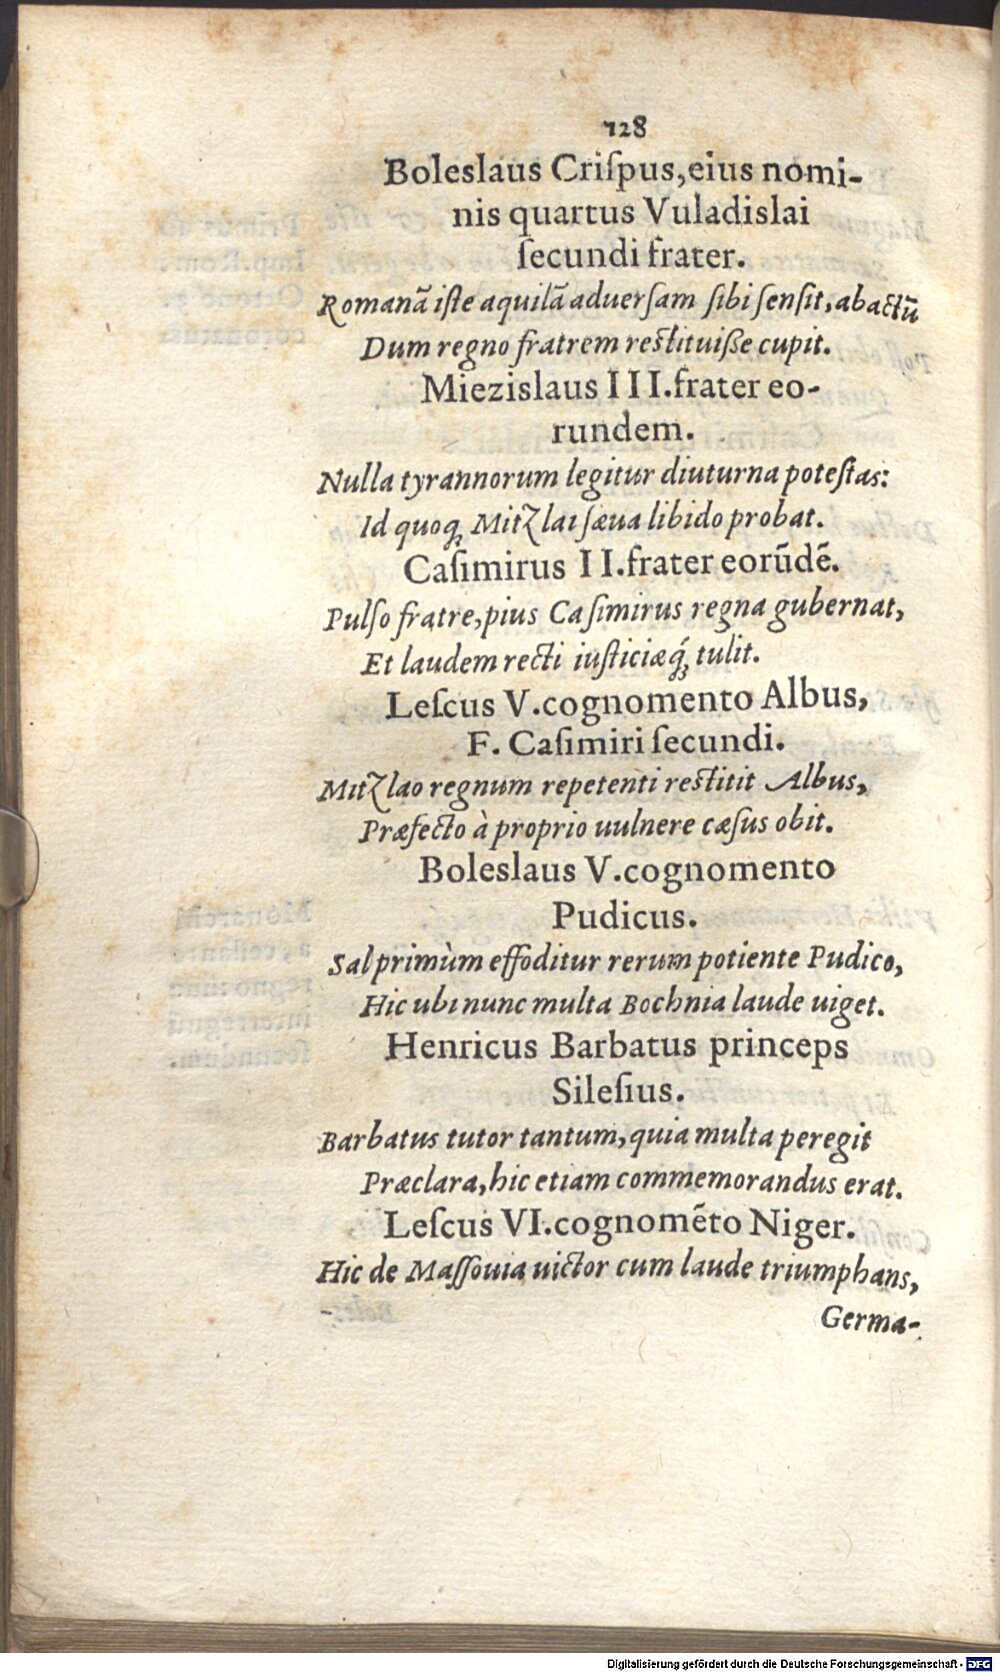 128
Boleslaus Criſpus,eius nomi-
nis quartus Vuladislai
ſecundi frater.
Romanã iſte aquilã aduerſam ſibi ſenſit,abactũ
Dum regno fratrem reſtituiſſe cupit.
Miezislaus III.frater eo-
rundem.
Nulla tyrannorum legitur diuturna poteſtas:
Id quoqꝫ Mitzlai ſæua libido probat.
Caſimirus II.frater eorũdẽ.
Pulſo fratre,pius Caſimirus regna gubernat,
Et laudem recti iuſticiæqꝫ́ tulit.
Leſcus V.cognomento Albus,
F. Caſimiri ſecundi.
Mitzlao regnum repetenti reſtitit Albus,
Præfecto à proprio uulnere cæſus obit.
Boleslaus V.cognomento
Pudicus.
Sal primùm effoditur rerum potiente Pudico,
Hic ubi nunc multa Bochnia laude uiget.
Henricus Barbatus princeps
Sileſius.
Barbatus tutor tantum,quia multa peregit
Præclara,hic etiam commemorandus erat.
Leſcus VI.cognomẽto Niger.
Hic de Maſſouia uictor cum laude triumphans,
Germa-
Digitalisierung gefördert durch die Deutsche Forschungsgemeinschaft - DFG